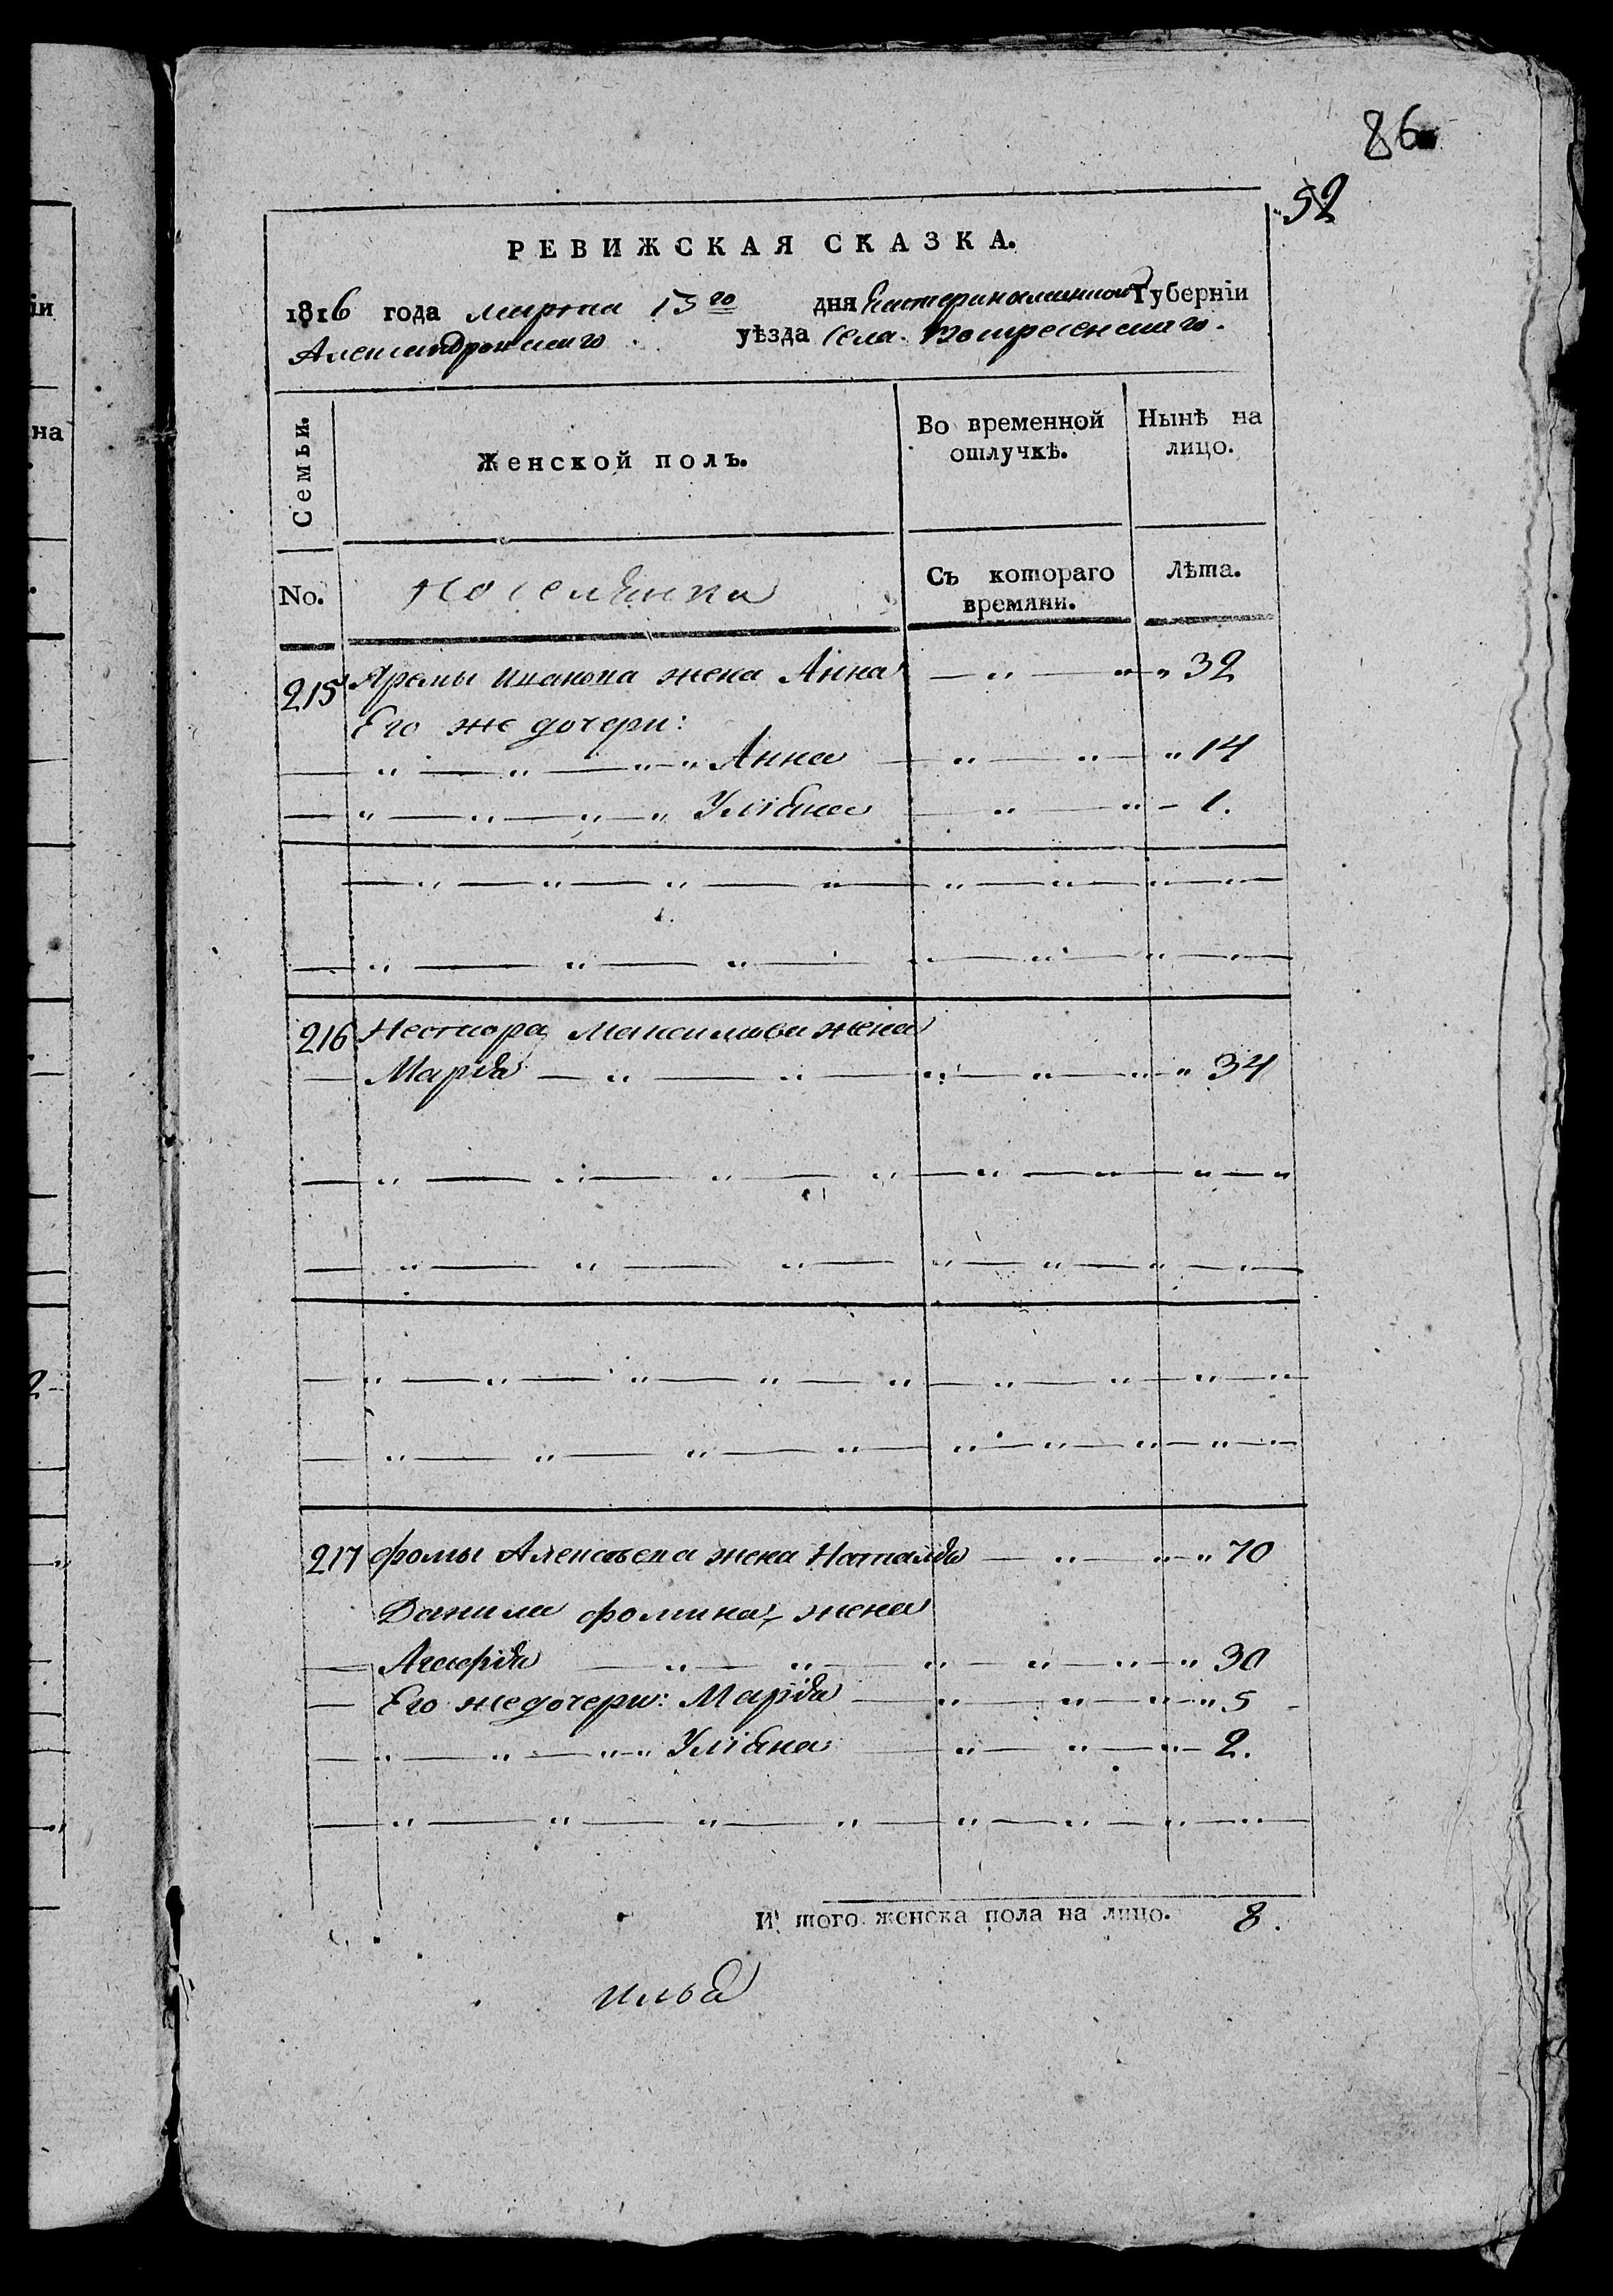 86
52
РЕВИЖСКАЯ СКАЗКА.
1816 года марта 15го дня Екатеринославской Губернїи
Александровскаго уѣзда села Воскресенскаго.
Семьи.
Женской полъ.
Во временной отлучкѣ.
Нынѣ на лицо.
No.
поселянки
Съ котораго времяни.
Лѣта.
215 Яремы Иванова жена Анна — " — " " 32
Его же дочери:
— " — " — " " Анна — " — " — " 14
— " — " — " — " Улїяна — " — " — 1.
216 Нестора Максимова жена
— Марїя — " — " — " — " — " " 34
217 Фомы Алексѣева жена Наталїя — " — " — " 70
Данила Фомина жена
— — " — " — " — " — " — " 30
— Его же дочери: Марїя — " — " — " — " 5
— " — " — " — " Улїяна — " — " — " — 2.
И того женска пола на лицо. 8.